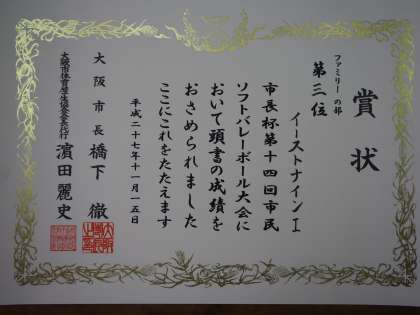 賞状
ファミリーの部
第三位
イーストナインI
市長杯第十四回市民
ソフトバレーボール大会に
おいて頭書の成績を
おさめられました
ここにこれをたたえます
平成二十七年十一月一五日
大阪市長 橋下 徹
大阪市体育厚生協会会長代行 濵田麗史